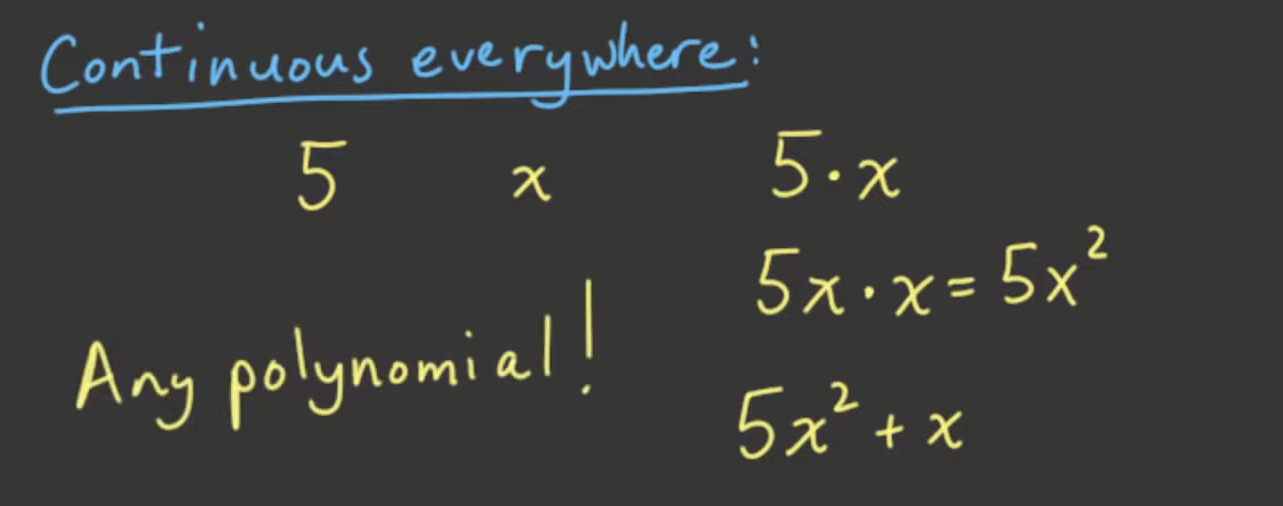 Continuous everywhere:
5 x 5·x
5x·x = 5x²
Any polynomial!
5x² + x